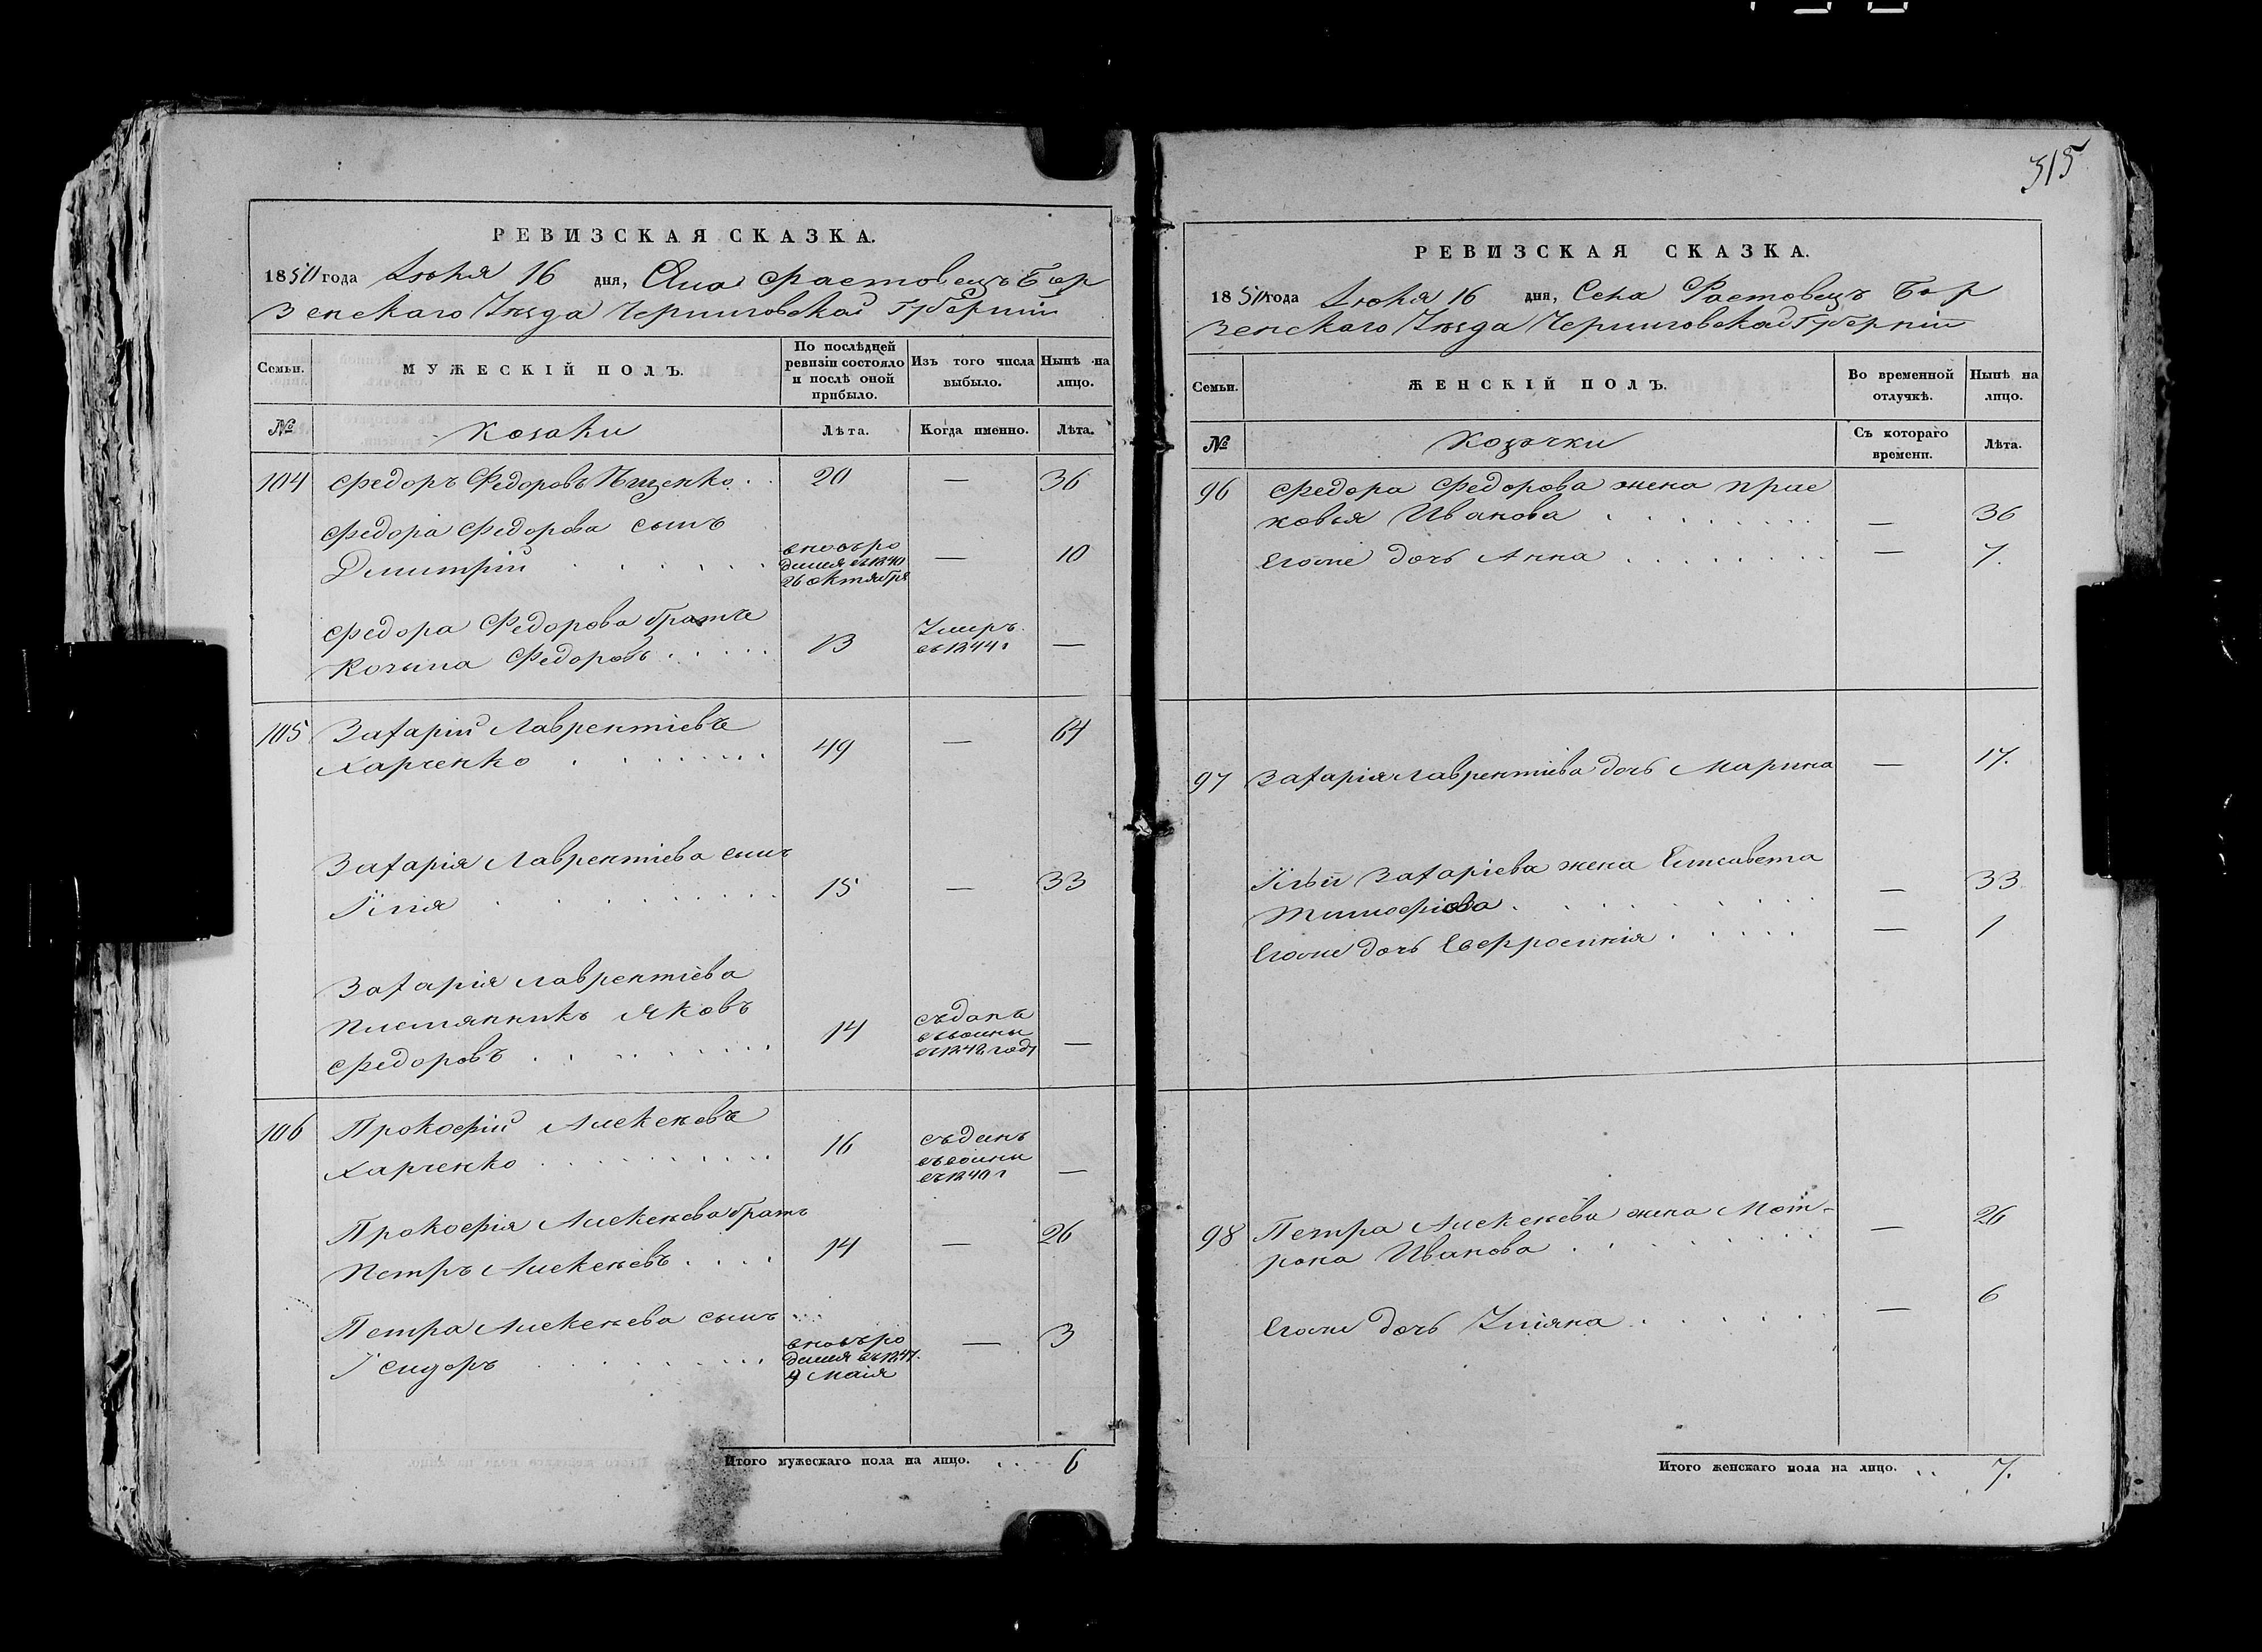 315
РЕВИЗСКАЯ СКАЗКА.
1850 года Июня 16 дня, Села Фастовецъ Бор
зенскаго Уѣзда Черниговской Губерніи
Семьи.
МУЖЕСКІЙ ПОЛЪ.
По послѣдней ревизіи состояло и послѣ оной прибыло.
Изъ того числа выбыло.
Нынѣ на лицо.
№
Козаки
Лѣта.
Когда именно.
Лѣта.
104 Федоръ Федоровъ Пищенко . . 20 — 36
Федора Федорова сынъ
Димитрій . . . . . . вновь ро
дился въ 1840
26 октября — 10
Федора Федорова братъ
Федоровъ . . . . . 13 Умеръ
въ 1844 г —
105 Захарій Лаврентіевъ
Харченко . . . . . . . 49 — 64
Захарія Лаврентіева сынъ
Илія . . . . . . . . . 15 — 33
Захарія Лаврентіева
племянникъ Яковъ
Федоровъ . . . . . . . . 14 съданъ
въ воины
въ 184 году —
106 Прокофій Алексѣевъ
Харченко . . . . . . . . . 16 съданъ
въ воины
въ 1840 г —
Прокофія Алексѣева братъ
Петръ Алексѣевъ . . . . 14 — 26
Петра Алексѣева сынъ
Ісидоръ . . . . . . . . вновь ро
дился въ 1847.
9 маія — 3
Итого мужескаго пола на лицо. . . . 6
РЕВИЗСКАЯ СКАЗКА.
1850 года Июня 16 дня, Села Фастовецъ Бор
зенскаго Уѣзда Черниговской Губерніи
Семьи.
ЖЕНСКІЙ ПОЛЪ.
Во временной отлучкѣ.
Нынѣ на лицо.
№
Козачки
Съ котораго времени.
Лѣта.
96 Федора Федорова жена Прас
ковья Иванова . . . . . . . . — 36
Егоже дочь Анна . . . . . . . — 7.
97 Захарія Лаврентіева дочь Марина — 17.
Ильи Захаріева жена Елисавета
Тимофіова . . . . . . . . . — 33
Егоже дочь Евфросинія . . . . . — 1
98 Петра Алексѣева жена Мот-
рона Иванова . . . . . . . — 26
Егоже дочь Уліяна . . . . . — 6
Итого женскаго пола на лицо. . . 7.